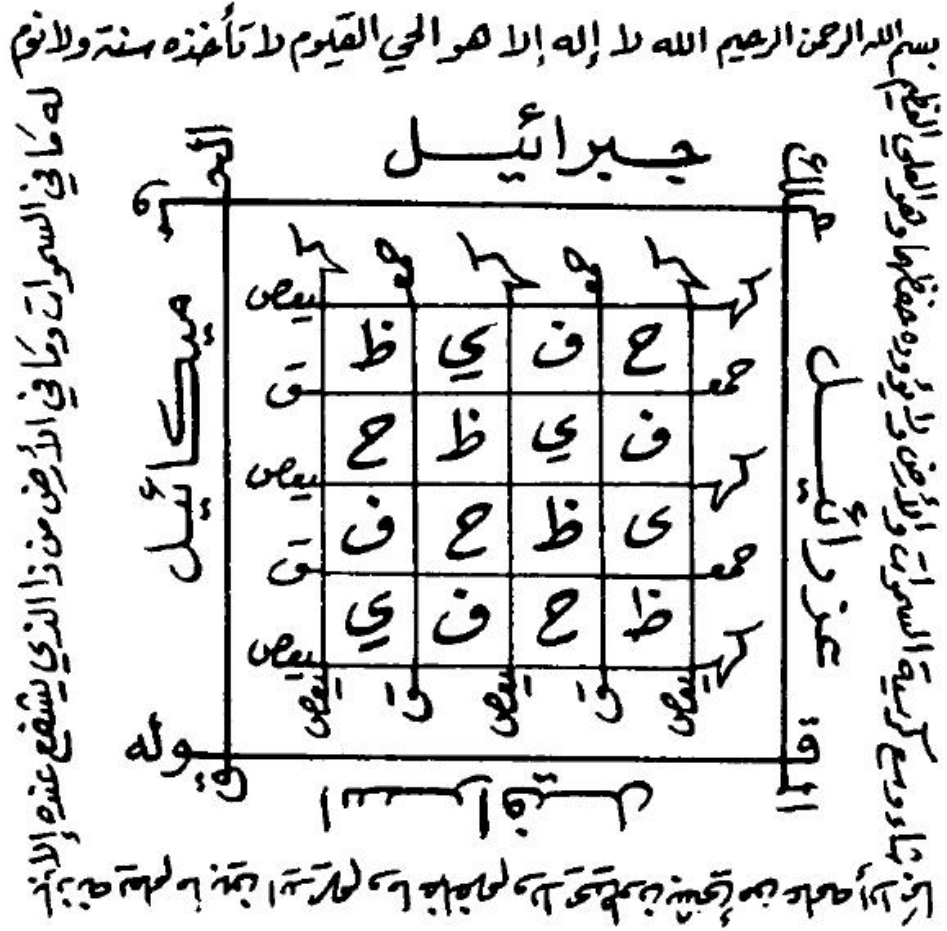 بسم الله الرحمن الرحيم الله لا إله إلا هو الحي القيوم لا تأخذه سنة ولا نوم
له ما في السموات وما في الأرض من ذا الذي يشفع عنده إلا
بإذنه يعلم ما بين ايديهم وما خلفهم ولا يحيطون بشيء من علمه إلا بما
شاء وسع كرسيه السموات والأرض ولا يؤوده حفظهما وهو العلي العظيم
جبرائيل
عزرائيل
ميكائيل
كهـ يعص
ح ف ي ظ
حمعـ ـسق
ف ي ظ ح
كهـ يعص
ى ظ ح ف
حمعـ ـسق
ظ ح ف ي
كهـ يعص
وله
اسرافيل